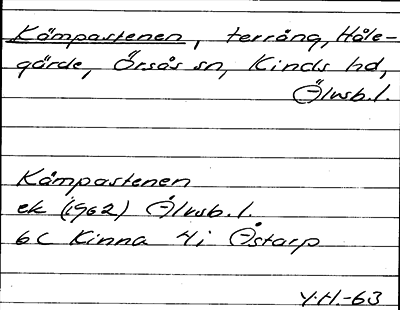 Kämpastenen, terräng, Håle-
gärde, Örsås sn, Kinds hd,
Älvsb.l.
Kämpastenen
ek (1962) Älvsb.l.
6C Kinna 4i Östarp
Y.H.-63